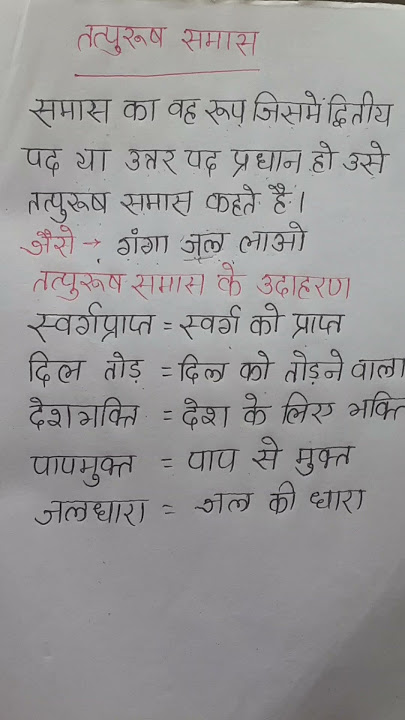 तत्पुरूष समास
समास का वह रूप जिसमें द्वितीय
पद या उत्तर पद प्रधान हो उसे
तत्पुरूष समास कहते है।
जैसे → गंगा जल लाओ
तत्पुरूष समास के उदाहरण
स्वर्गप्राप्त = स्वर्ग को प्राप्त
दिल तोड़ = दिल को तोड़ने वाला
देशभक्ति = देश के लिए भक्ति
पापमुक्त = पाप से मुक्त
जलधारा = जल की धारा